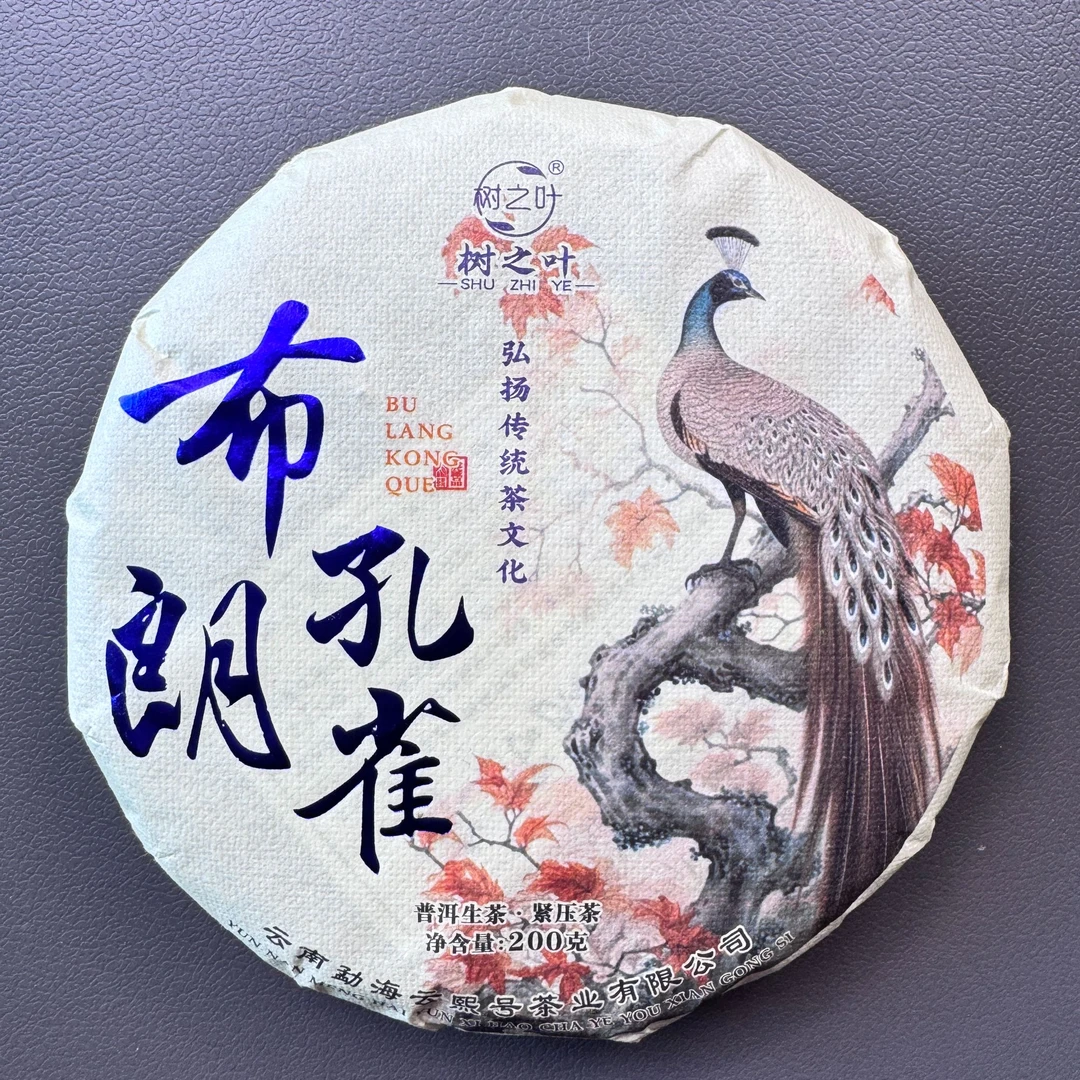 树之叶®
树之叶
SHU ZHI YE
布朗
孔雀
BU
LANG
KONG
QUE
弘扬传统茶文化
普洱生茶·紧压茶
净含量:200克
云南勐海云熙号茶业有限公司
YUN NAN MENG HAI YUN XI HAO CHA YE YOU XIAN GONG SI